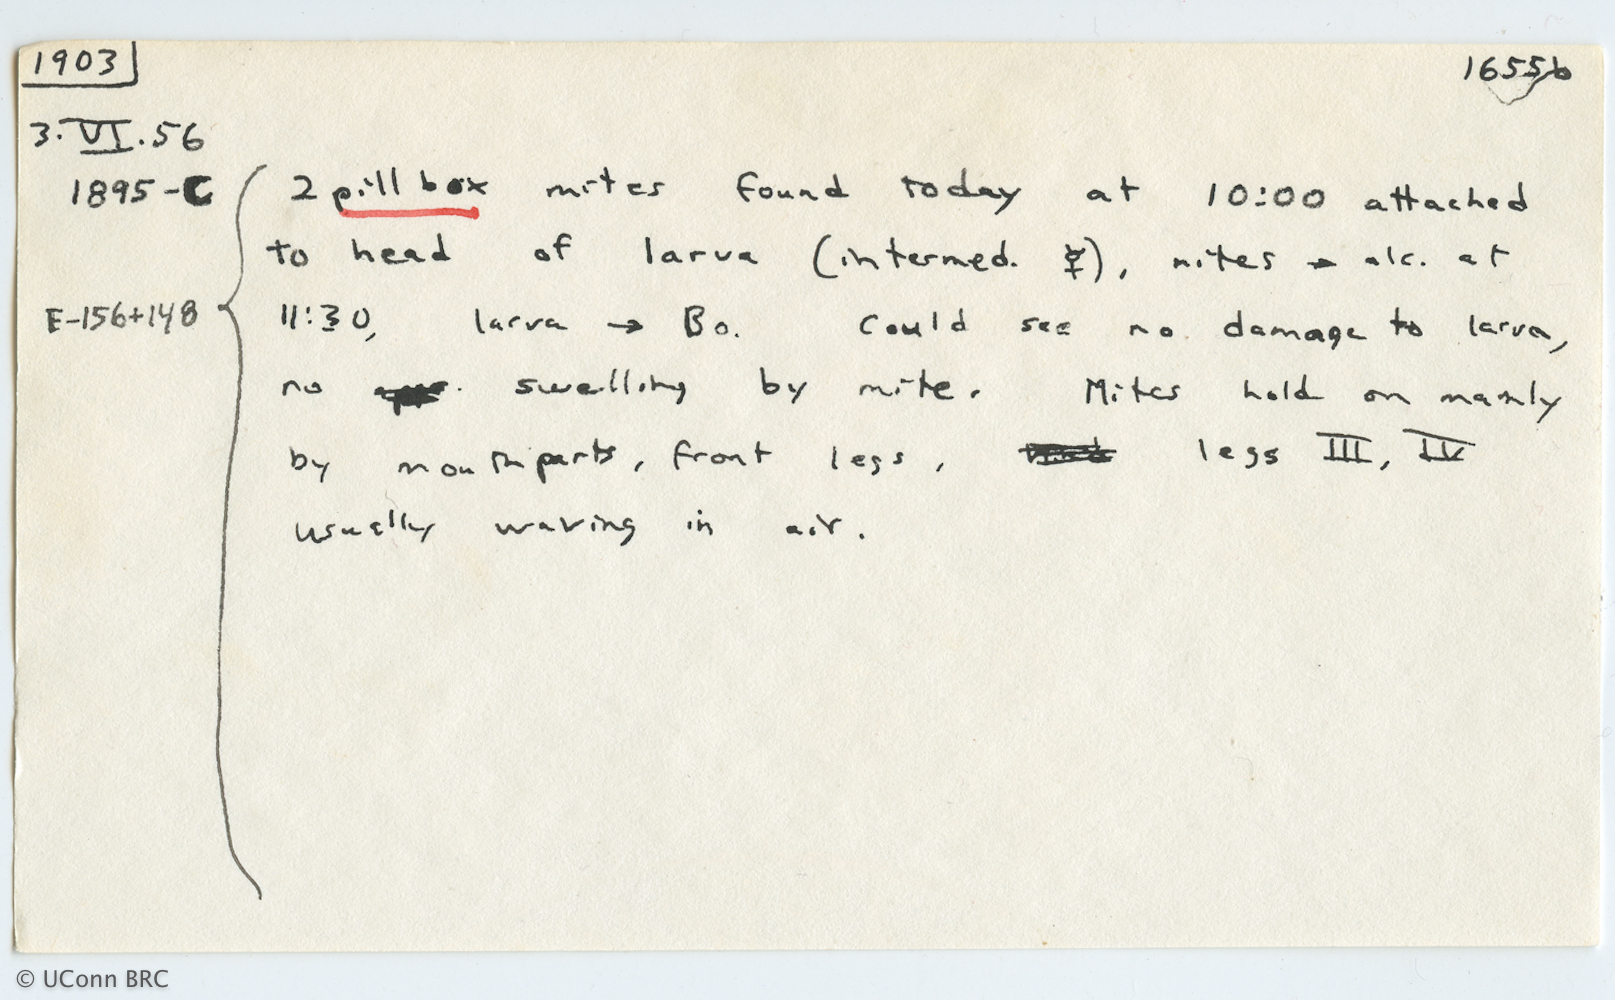 1903
1655b
3.VI.56
1895-C
2 pill box mites found today at 10:00 attached
to head of larva (intermed. ☿), mites → alc. at
E-156+148
11:30, larva → Bo. Could see no damage to larva,
no swelling by mite. Mites hold on mainly
by mouthparts, front legs, legs III, IV
usually waving in air.
© UConn BRC